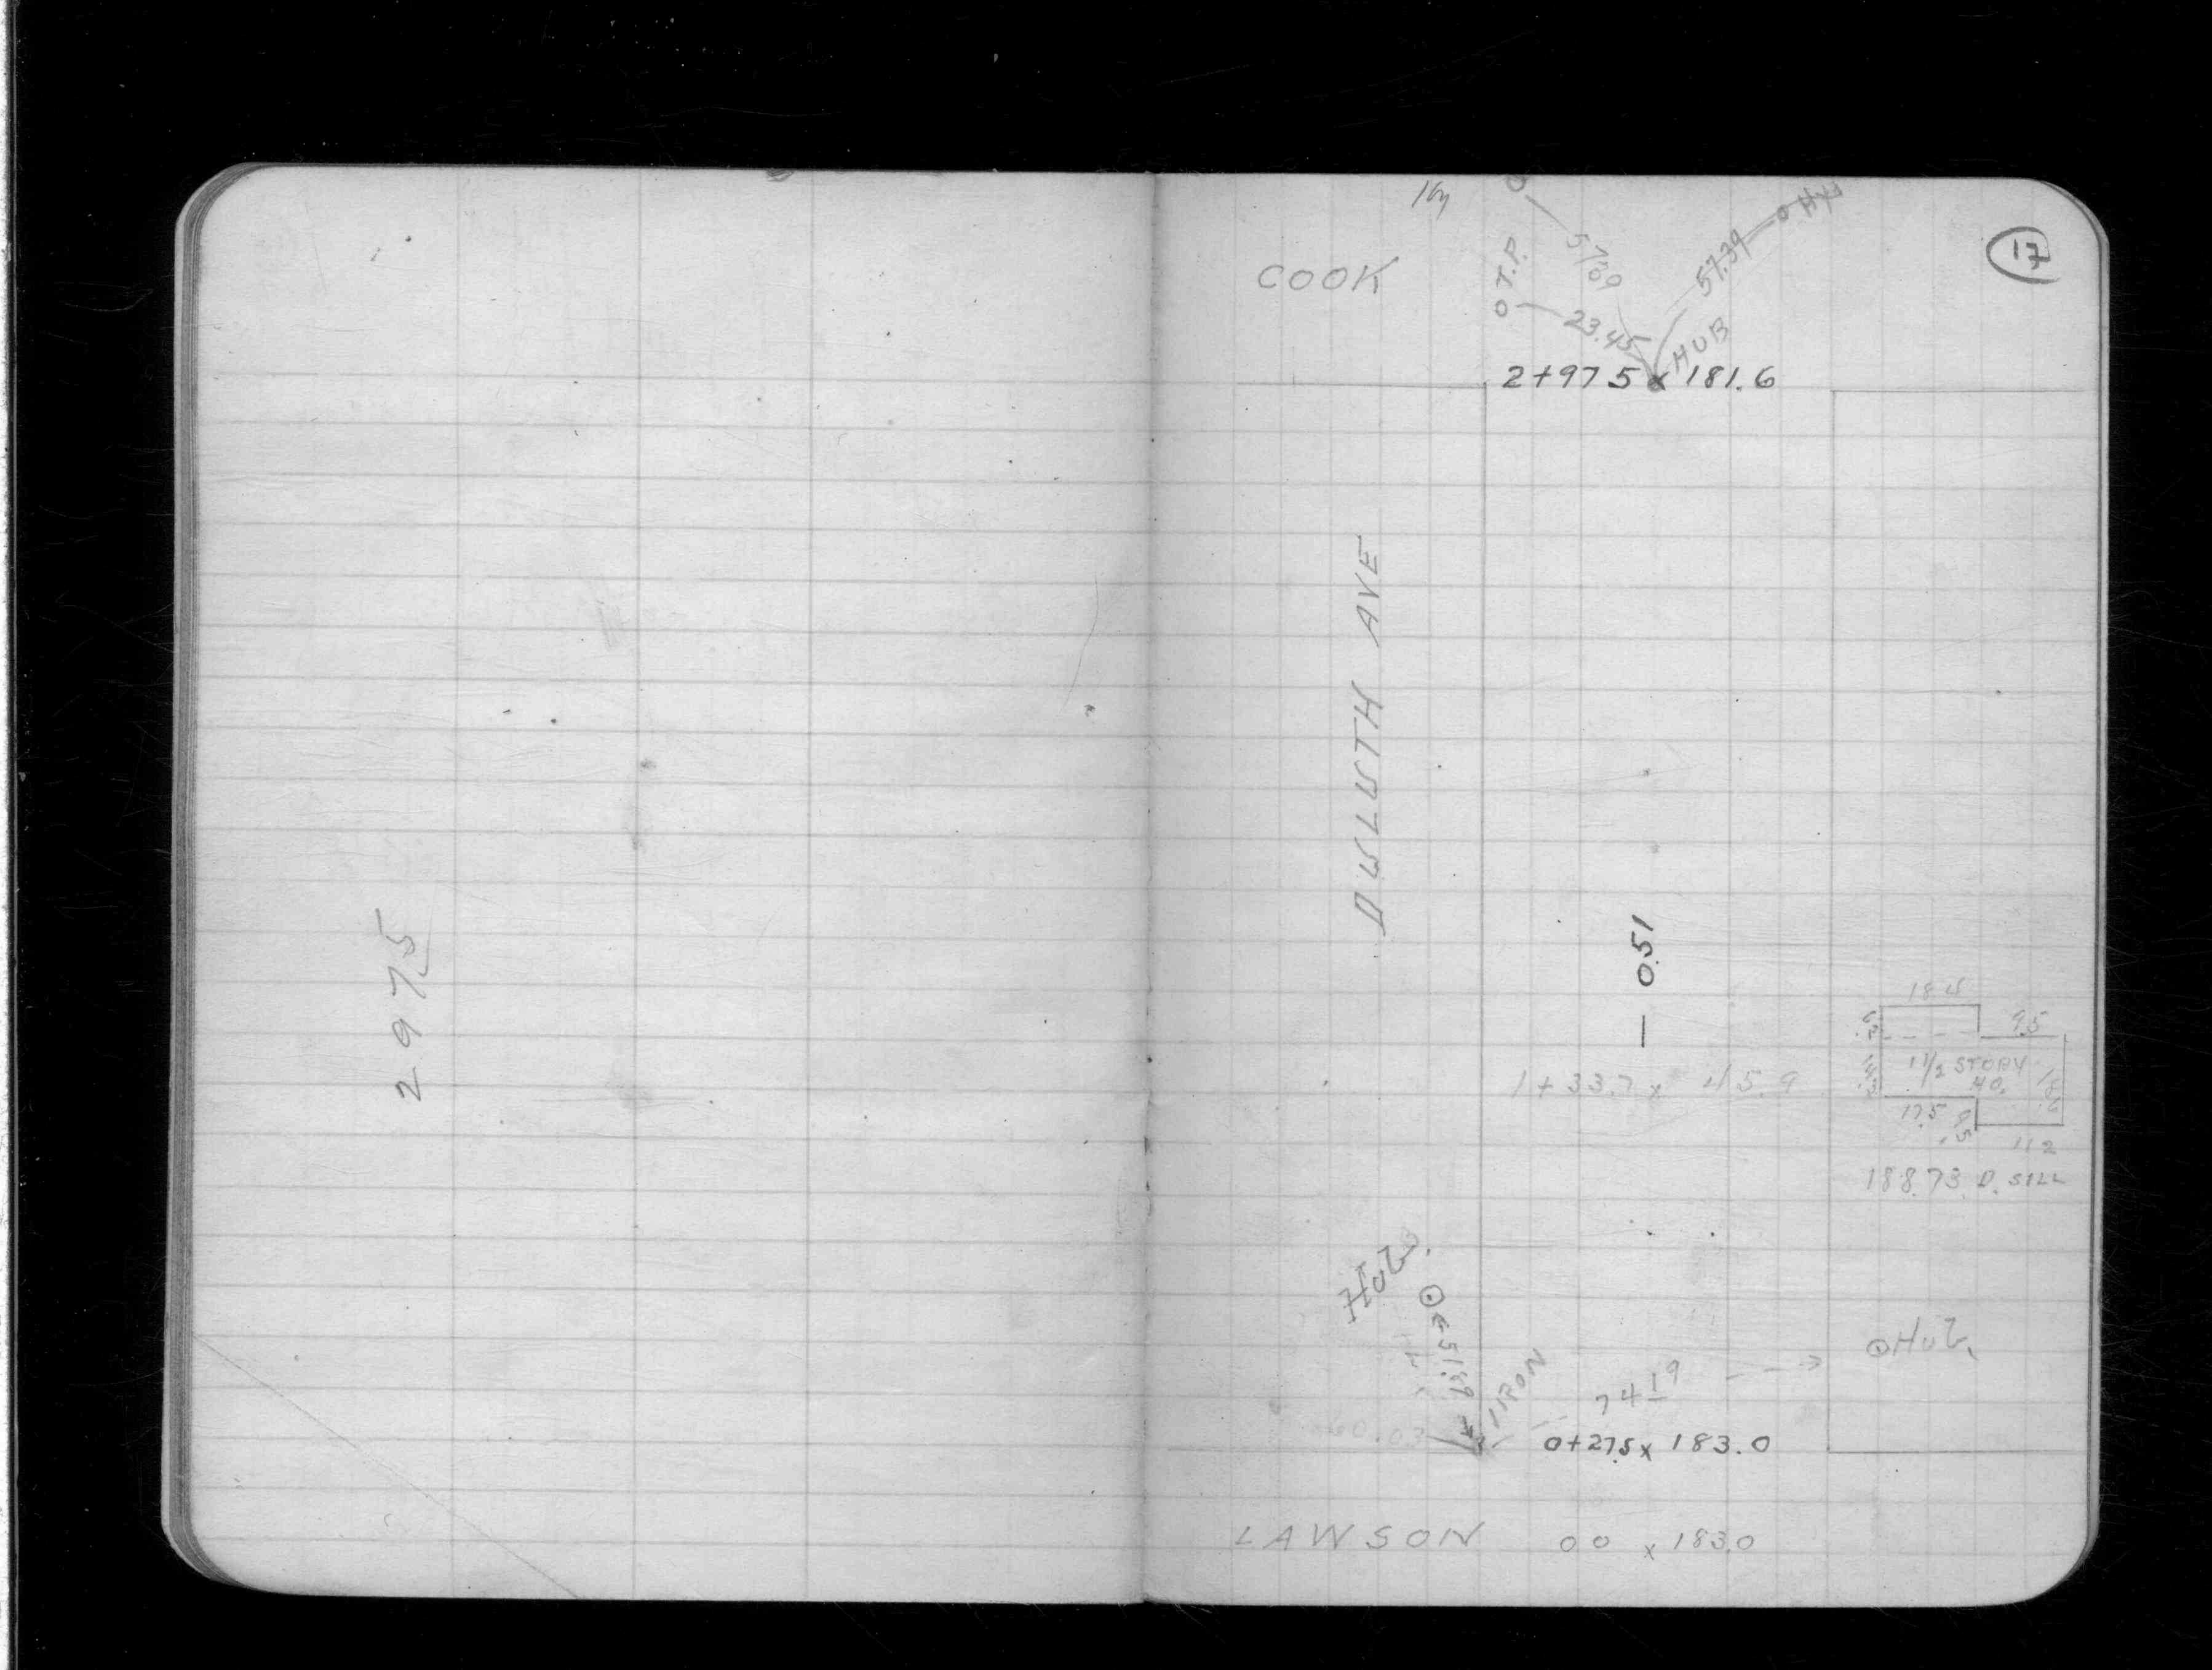 2975
17
COOK
T.P.
57.39
57.39
Hyd
23.45
HUB
2+97.5 x 181.6
DULUTH AVE
— 0.51
18.4
9.5
1 1/2 STORY
HO.
18.2
17.5
8.5
11.2
1+33.7 x 45.9
188.73 D. SILL
Hub
51.89
IRON
74.19
Hub
0+27.5 x 183.0
LAWSON 00 x 183.0